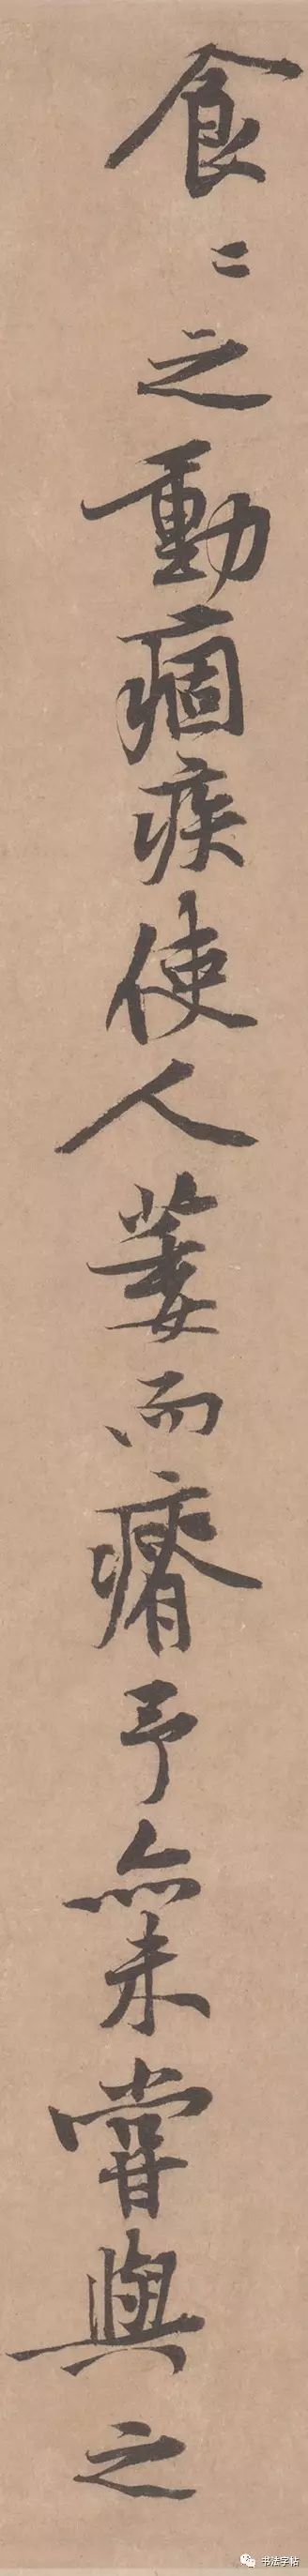 食〻之動痼疾使人萎而瘠予亦未嘗與之
书法字帖